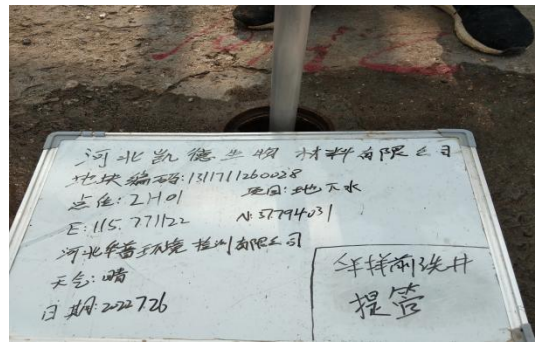 河北凯德生物材料有限公司
地块编码:1311711260028
点位:2H01 项目:地下水
E:115.771122 N:37.794031
河北华普环境检测有限公司
天气:晴
日期:2022.7.26
采样前洗井
提管